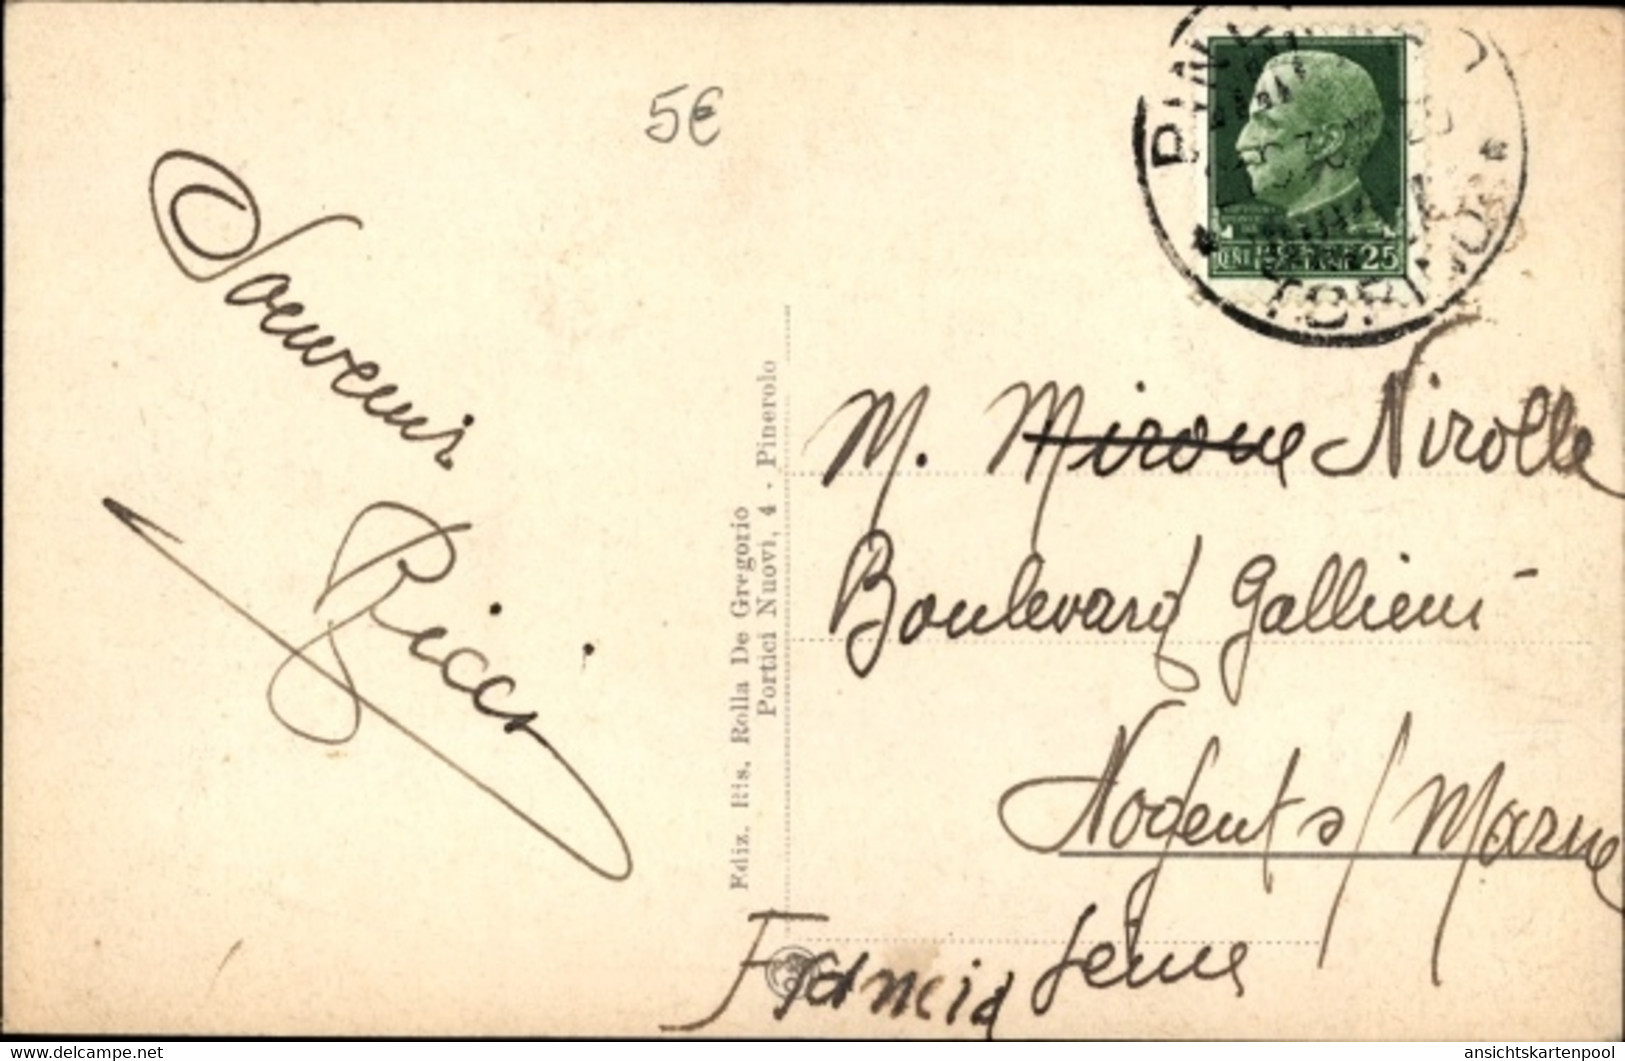 5€
Souvenir
Ricci
Ediz. Ris. Rolla De Gregorio
Portici Nuovi, 4 - Pinerolo
TORINO
25
M. Mirone Nirolle
Boulevard Gallieni
Nogent s/Marne
Seine
Francia
ansichtskartenpool